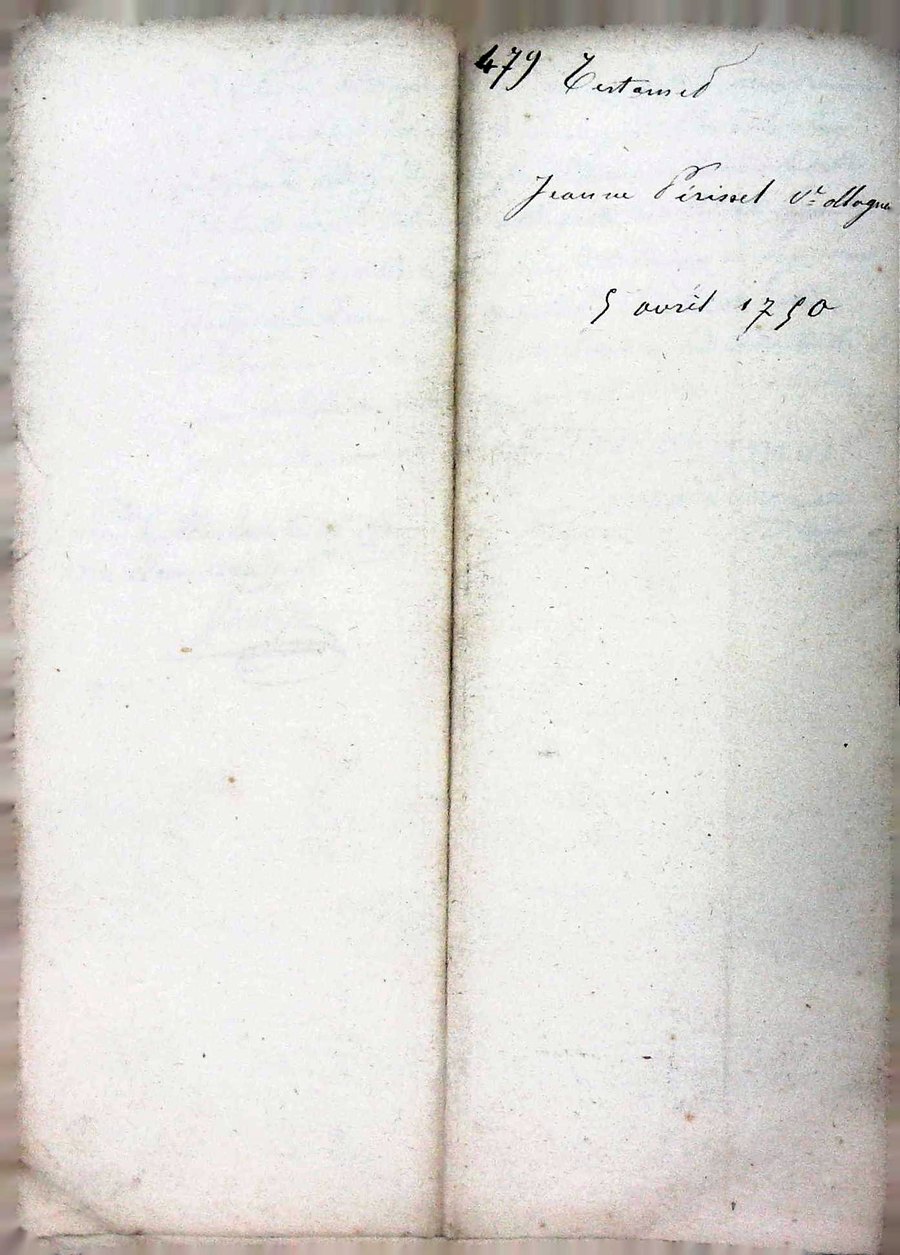 479 Testament
Jeanne Périssel Ve Mogue
5 avril 1750